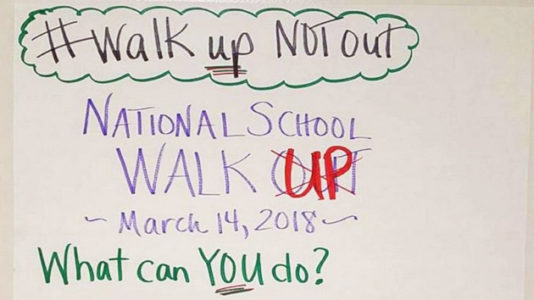 #Walk up NOT out
NATIONAL SCHOOL
WALK UP
~ March 14, 2018 ~
What can YOU do?